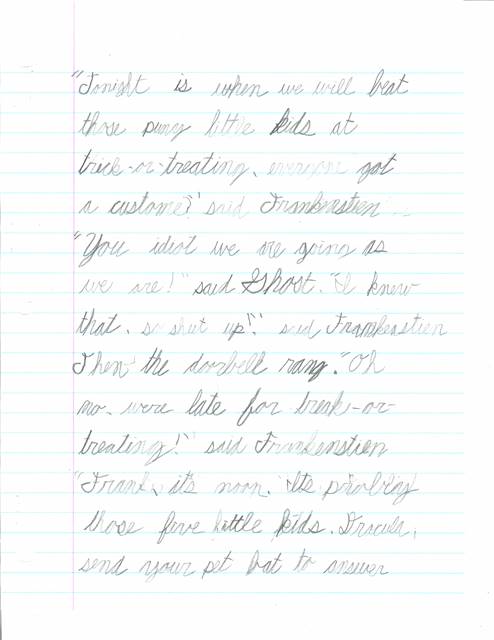 "Tonight is when we will beat
those puny little kids at
trick-or-treating, everyone got
a custome?" said Frankenstien
"You idiot we are going as
we are!" said Ghost. "I knew
that, so shut up!" said Frankenstien
Then the doorbell rang. "Oh
no, were late for treak-or-
treating!" said Frankenstien
"Frank, it's noon. Its probluy
those five little kids. Dracula,
send your pet bat to answer